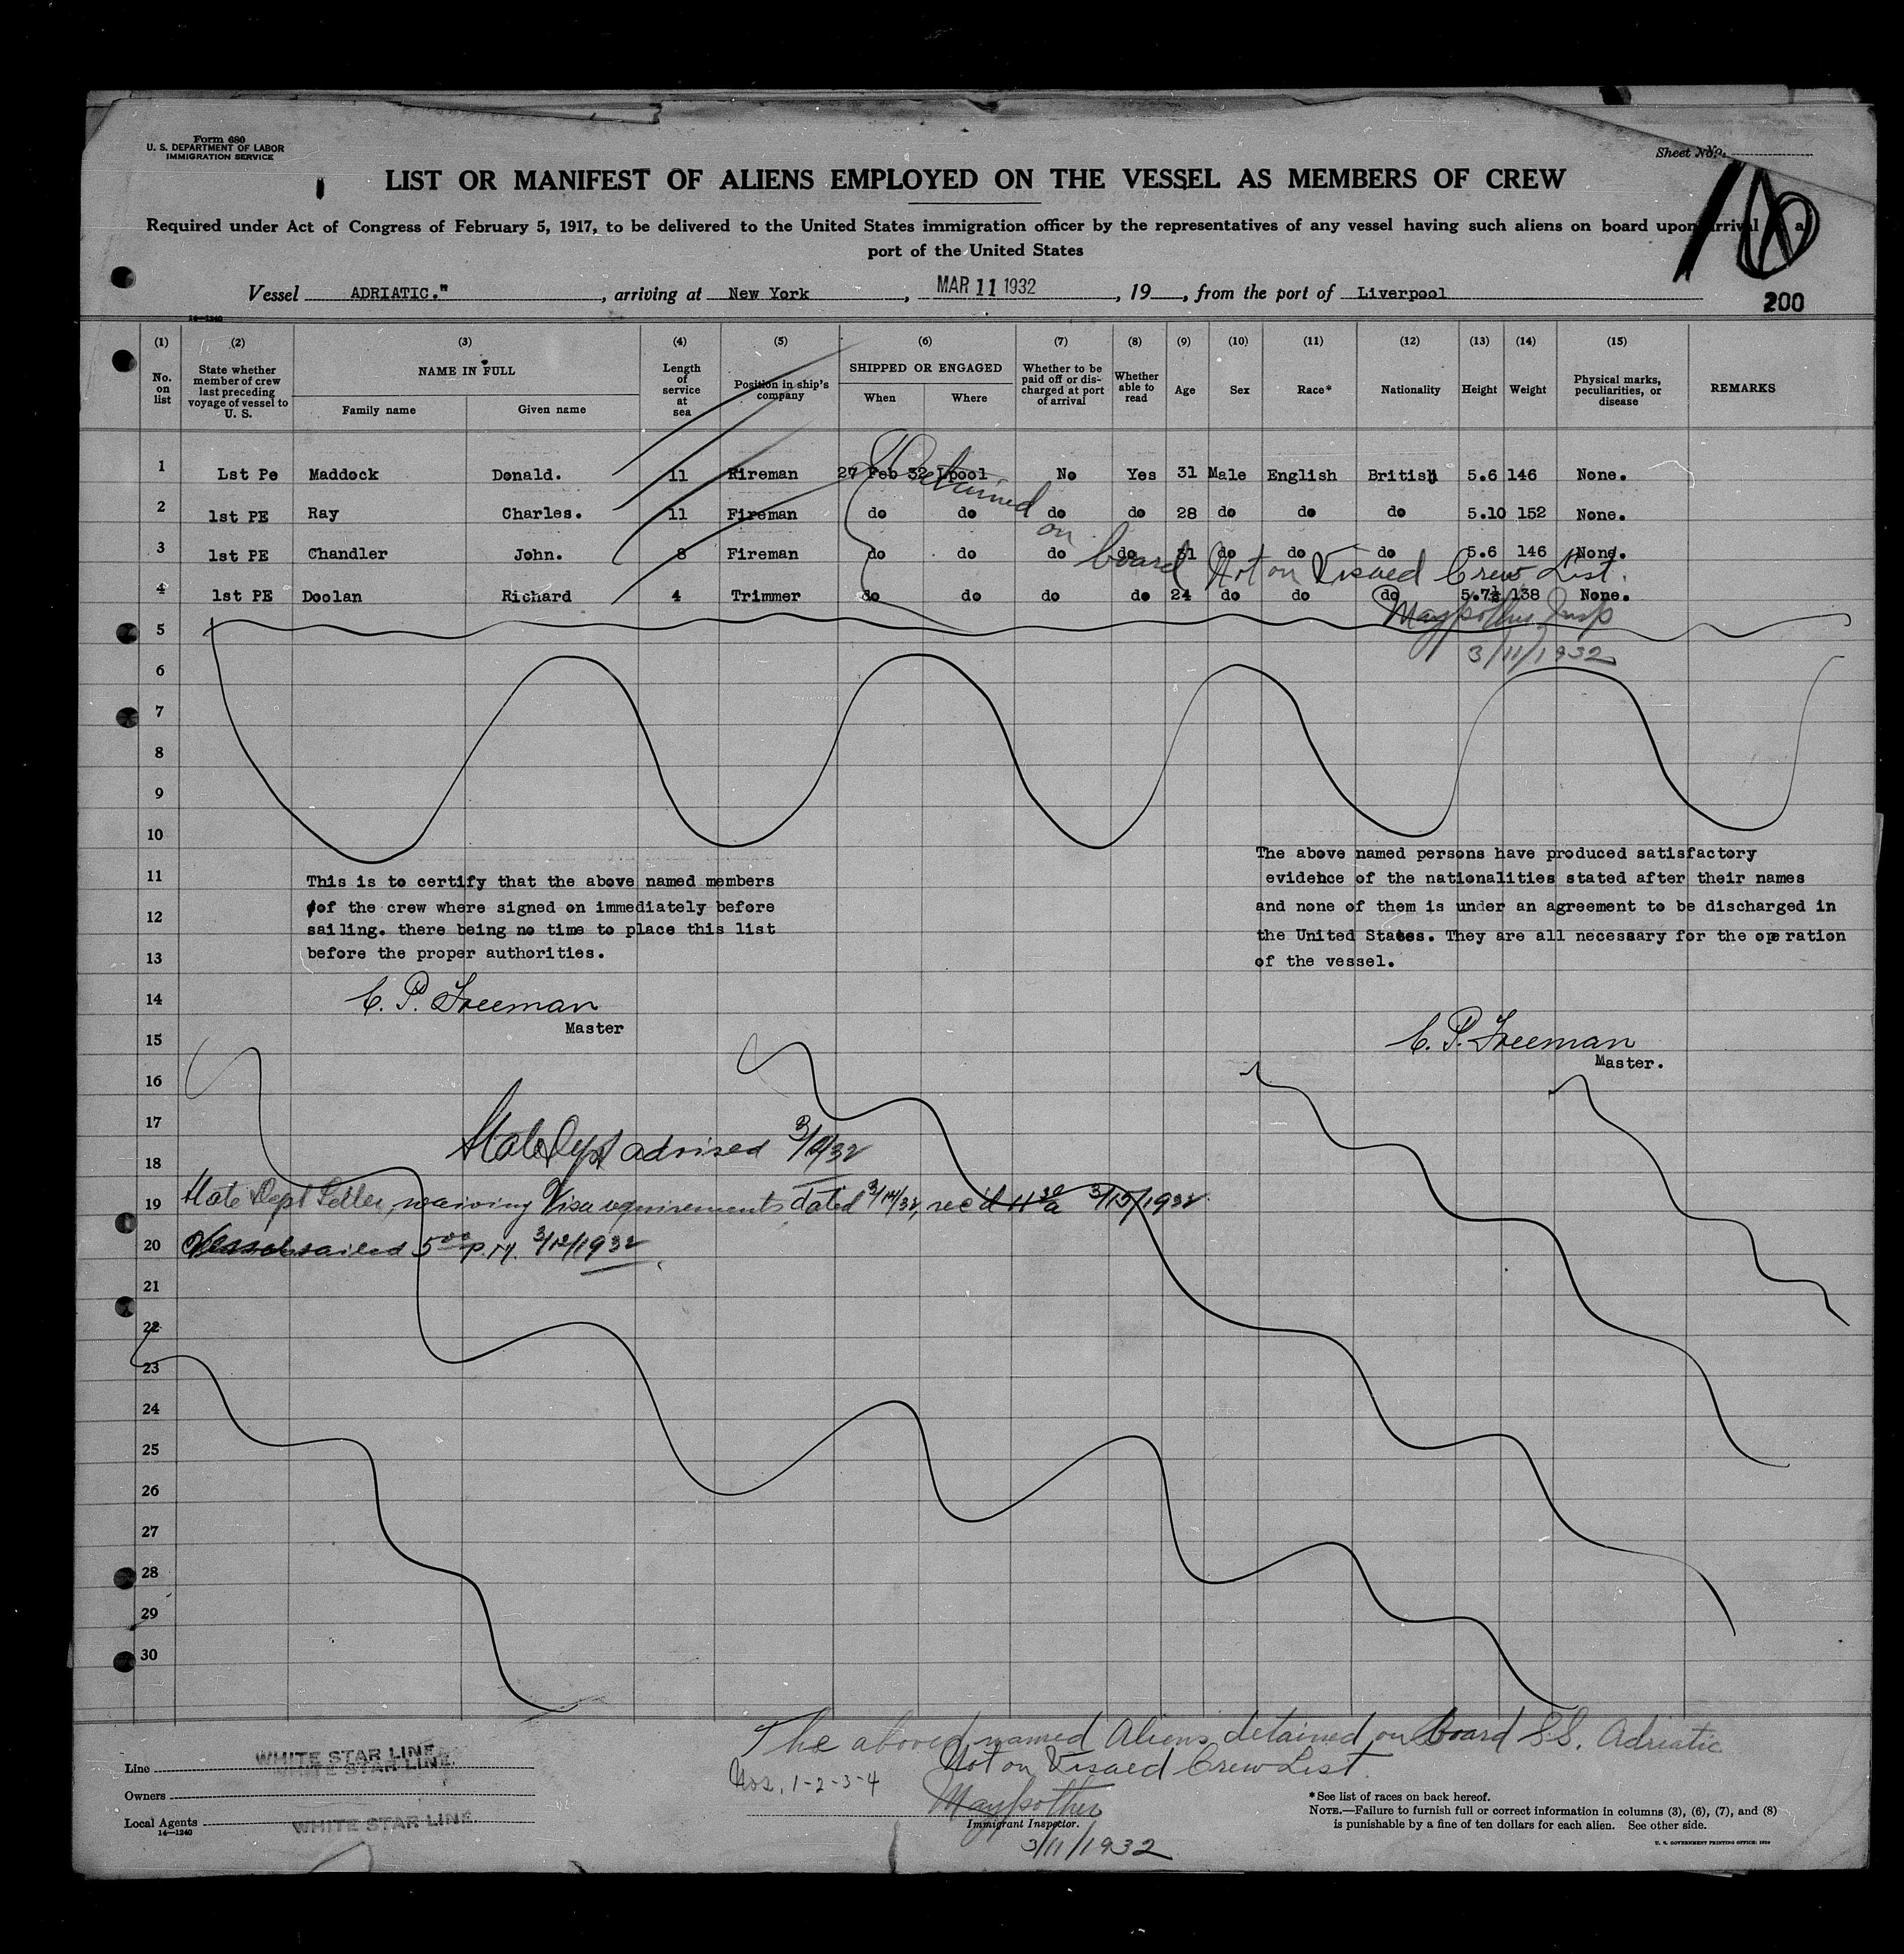 Form 680
U. S. DEPARTMENT OF LABOR
IMMIGRATION SERVICE
Sheet No.
LIST OR MANIFEST OF ALIENS EMPLOYED ON THE VESSEL AS MEMBERS OF CREW
Required under Act of Congress of February 5, 1917, to be delivered to the United States immigration officer by the representatives of any vessel having such aliens on board upon arrival a
port of the United States
16
Vessel ADRIATIC." , arriving at New York , MAR 11 1932 , 19 , from the port of Liverpool
200
14—1240
(1) (2) (3) (4) (5) (6) (7) (8) (9) (10) (11) (12) (13) (14) (15)
No. on list State whether member of crew last preceding voyage of vessel to U. S. NAME IN FULL Family name Given name Length of service at sea Position in ship's company SHIPPED OR ENGAGED When Where Whether to be paid off or discharged at port of arrival Whether able to read Age Sex Race* Nationality Height Weight Physical marks, peculiarities, or disease REMARKS
1 Lst Pe Maddock Donald. 11 Rireman 27 Feb 32 Lpool No Yes 31 Male English British 5.6 146 None.
2 1st PE Ray Charles. 11 Fireman do do do do 28 do do do 5.10 152 None.
3 1st PE Chandler John. 8 Fireman do do do do 31 do do do 5.6 146 None.
4 1st PE Doolan Richard 4 Trimmer do do do do 24 do do do 5.7½ 138 None.
Detained on board Not on Visaed Crew List.
Maypother Insp
3/11/1932
5
6
7
8
9
10
11
12
13
14
15
16
17
18
19
20
21
22
23
24
25
26
27
28
29
30
This is to certify that the above named members
of the crew where signed on immediately before
sailing. there being no time to place this list
before the proper authorities.
C. P. Freeman
Master
The above named persons have produced satisfactory
evidence of the nationalities stated after their names
and none of them is under an agreement to be discharged in
the United States. They are all necessary for the operation
of the vessel.
C. P. Freeman
Master.
State Dept advised
State Dept Letter, waiving Visa requirements dated rec'd 11 30 a
Vessel sailed 5 00 P.M. 3/12/1932
The above named Aliens detained on board SS. Adriatic
Not on Visaed Crew List.
Nos. 1-2-3-4
Maypother
Immigrant Inspector.
3/11/1932
Line WHITE STAR LINE.
Owners
Local Agents WHITE STAR LINE.
14—1240
*See list of races on back hereof.
NOTE.—Failure to furnish full or correct information in columns (3), (6), (7), and (8)
is punishable by a fine of ten dollars for each alien. See other side.